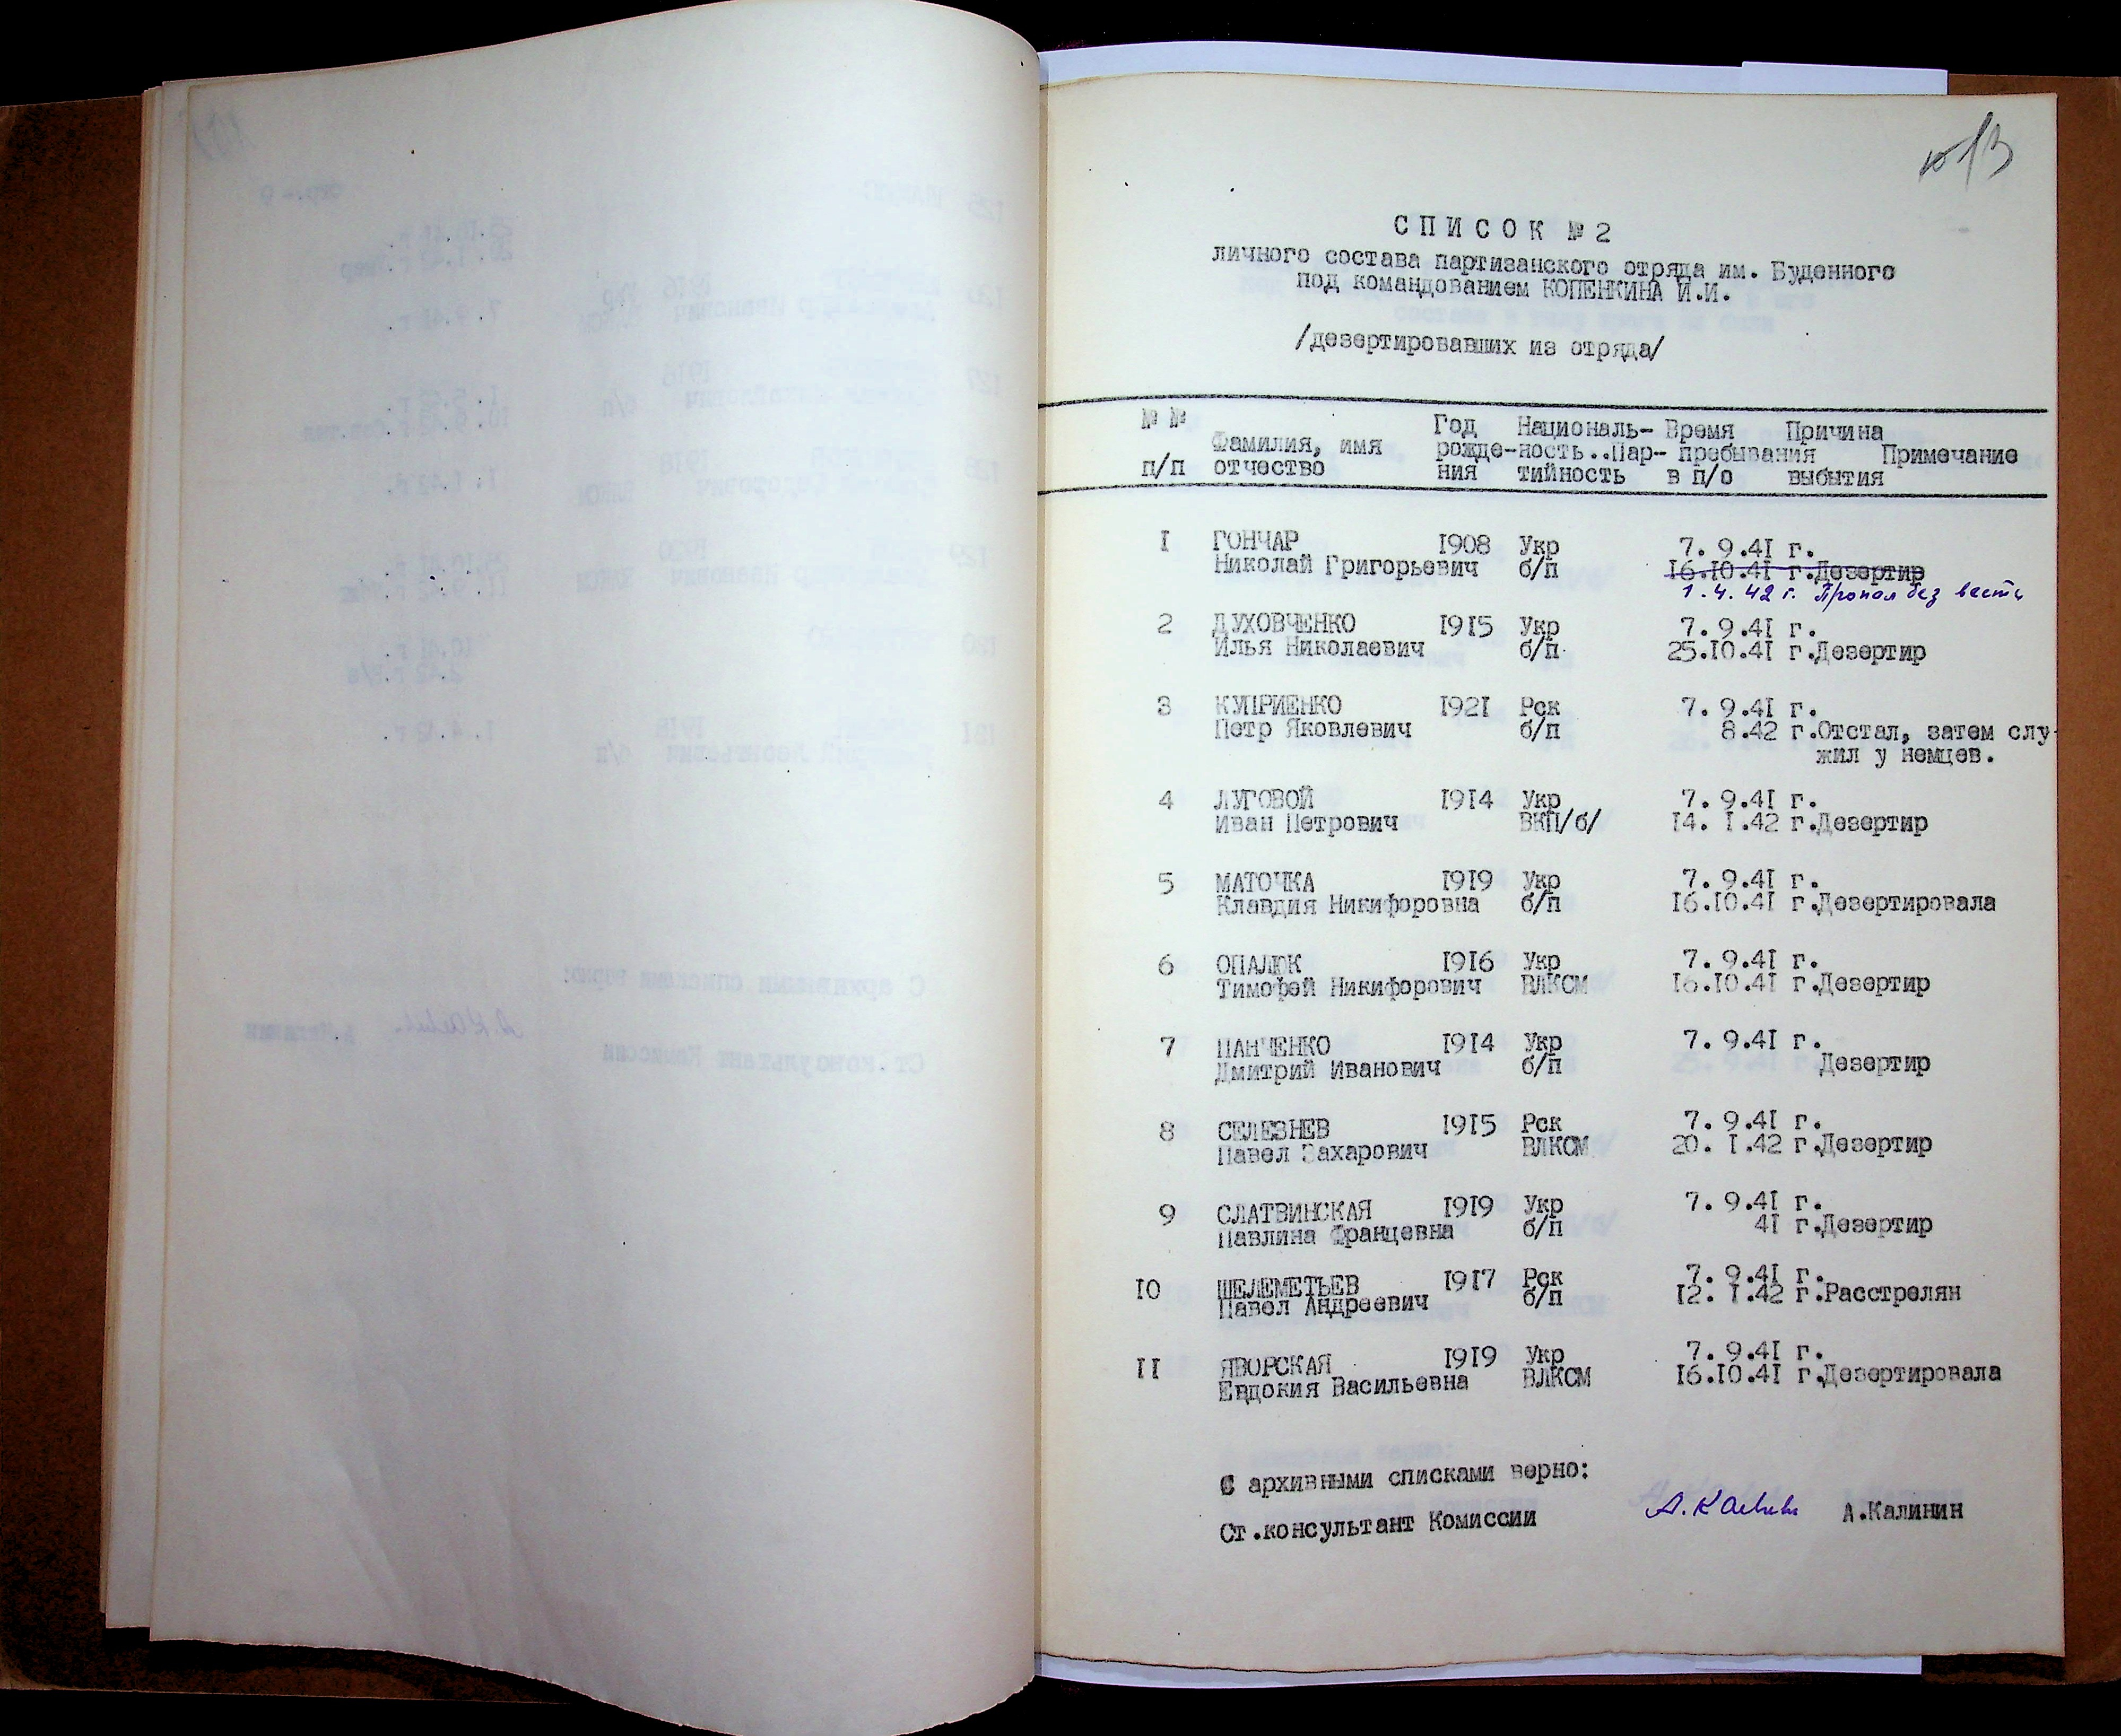 СПИСОК № 2
личного состава партизанского отряда им. Буденного
под командованием КОПЕНКИНА И.И.
/дезертировавших из отряда/
№ № Год Националь- Время Причина
Фамилия, имя рожде- ность..Пар- пребывания Примечание
п/п отчество ния тийность в п/о выбытия
1 ГОНЧАР 1908 Укр 7. 9.41 г.
Николай Григорьевич б/п 16.10.41 г.Дезертир
1.4.42 г. Пропал без вести
2 ДУХОВЧЕНКО 1915 Укр 7. 9.41 г.
Илья Николаевич б/п 25.10.41 г.Дезертир
3 КУПРИЕНКО 1921 Рск 7. 9.41 г.
Петр Яковлевич б/п 8.42 г.Отстал, затем слу-
жил у немцев.
4 ЛУГОВОЙ 1914 Укр 7. 9.41 г.
Иван Петрович ВКП/б/ 14. 1.42 г.Дезертир
5 МАТОЧКА 1919 Укр 7. 9.41 г.
Клавдия Никифоровна б/п 16.10.41 г.Дезертировала
6 ОПАЛЮК 1916 Укр 7. 9.41 г.
Тимофей Никифорович ВЛКСМ 16.10.41 г.Дезертир
7 ПАНЧЕНКО 1914 Укр 7. 9.41 г.
Дмитрий Иванович б/п Дезертир
8 СЕЛЕЗНЕВ 1915 Рск 7. 9.41 г.
Павел Захарович ВЛКСМ 20. 1.42 г.Дезертир
9 СЛАТВИНСКАЯ 1919 Укр 7. 9.41 г.
Павлина Францевна б/п 41 г.Дезертир
10 ШЕЛЕМЕТЬЕВ 1917 Рск 7. 9.41 г.
Павел Андреевич б/п 12. 1.42 г.Расстрелян
11 ЯВОРСКАЯ 1919 Укр 7. 9.41 г.
Евдокия Васильевна ВЛКСМ 16.10.41 г.Дезертировала
С архивными списками верно:
Ст.консультант Комиссии А.Калинин